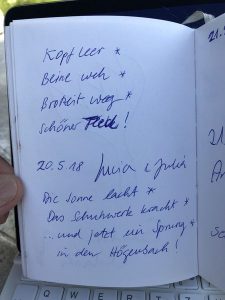 Kopf leer *
Beine weh *
Brotzeit weg *
Schöner Fleck!
20.5.18 Lucia & Julia
Die Sonne lacht *
Das Schuhwerk kracht *
...und jetzt ein Sprung *
in den Högenbach!
21.